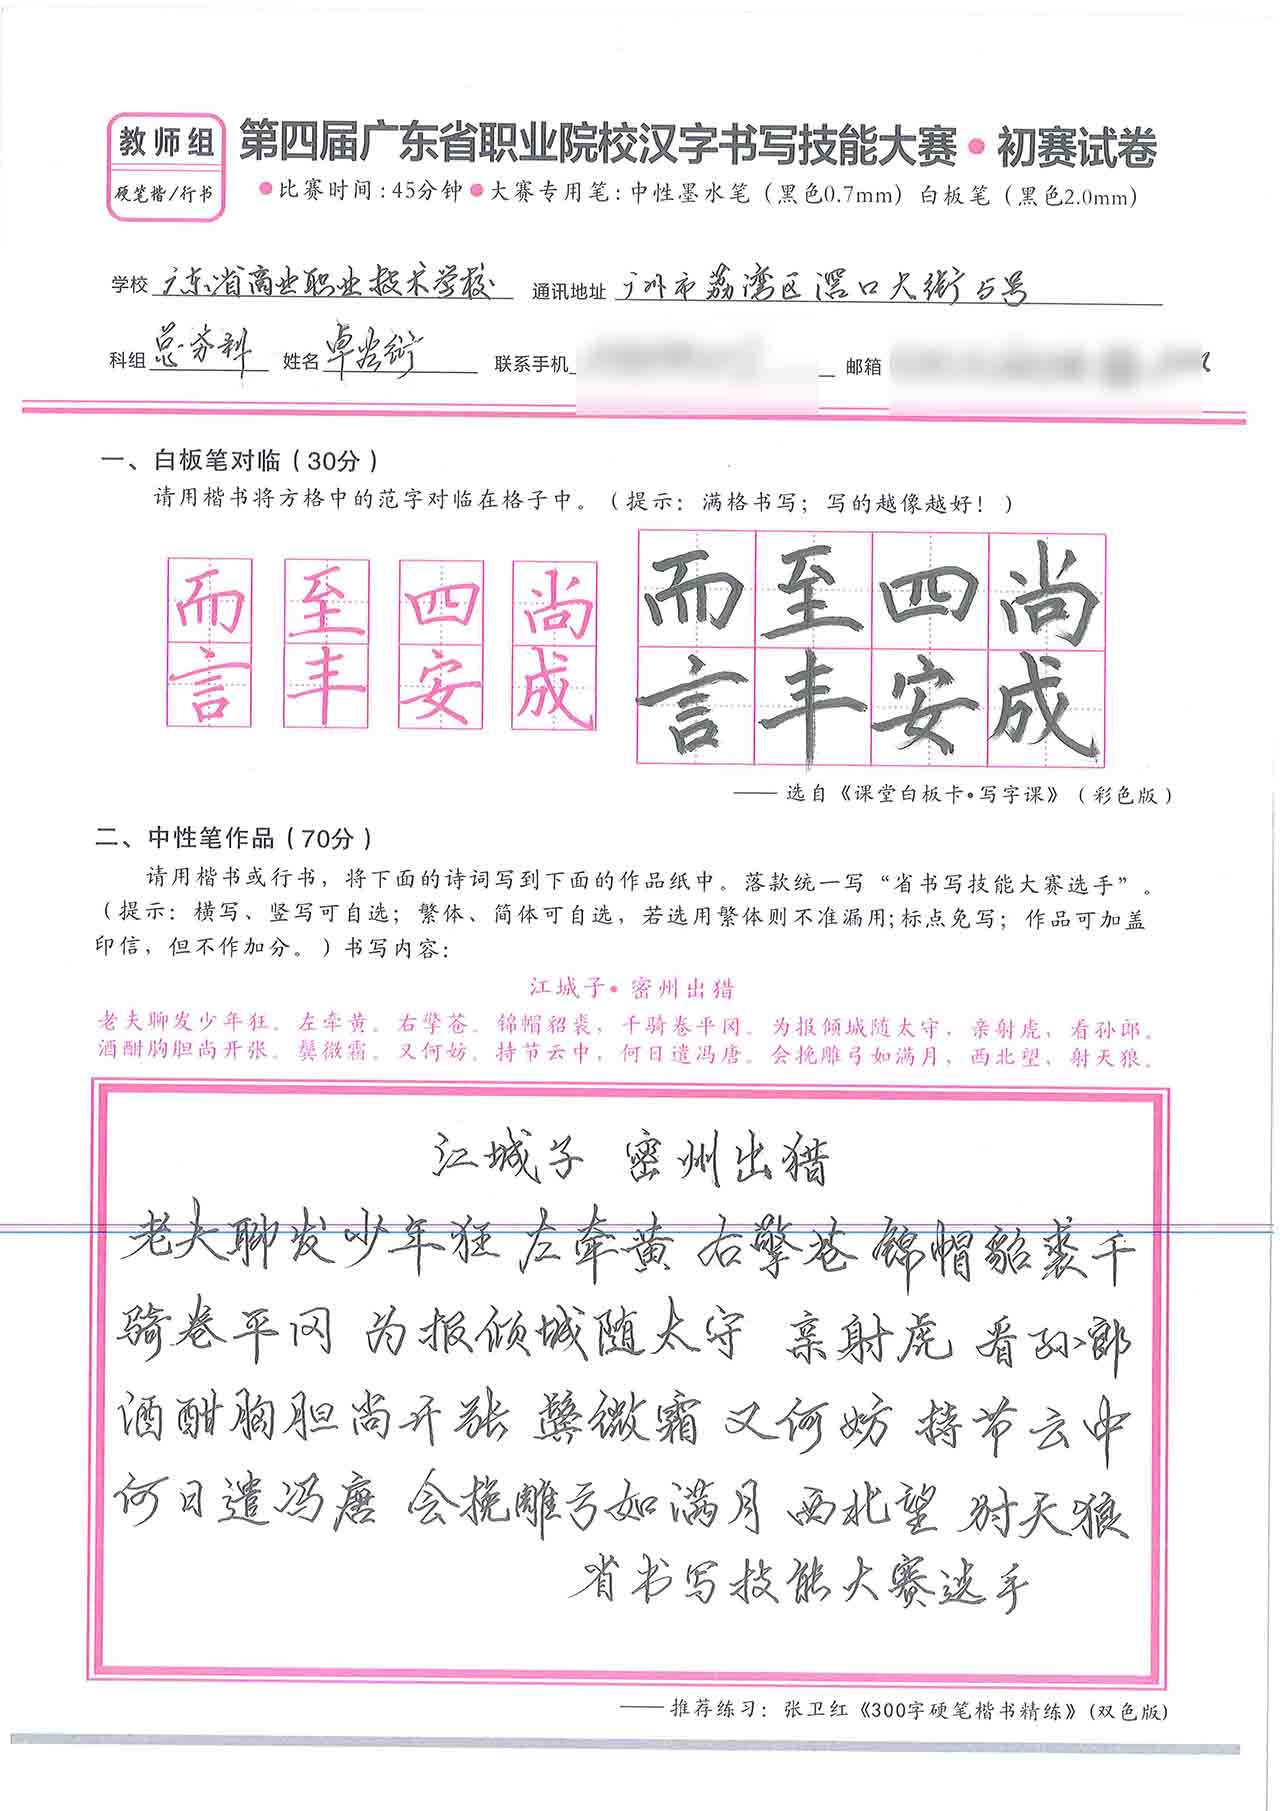 教师组
硬笔楷/行书
第四届广东省职业院校汉字书写技能大赛•初赛试卷
●比赛时间:45分钟●大赛专用笔:中性墨水笔(黑色0.7mm)白板笔(黑色2.0mm)
学校 广东省商业职业技术学校 通讯地址 广州市荔湾区滘口大街5号
科组 总务科 姓名 卓 衔 联系手机 邮箱
一、白板笔对临(30分)
请用楷书将方格中的范字对临在格子中。(提示:满格书写;写的越像越好!)
而 至 四 尚 而 至 四 尚
言 丰 安 成 言 丰 安 成
——选自《课堂白板卡•写字课》(彩色版)
二、中性笔作品(70分)
请用楷书或行书,将下面的诗词写到下面的作品纸中。落款统一写“省书写技能大赛选手”。
(提示:横写、竖写可自选;繁体、简体可自选,若选用繁体则不准漏用;标点免写;作品可加盖
印信,但不作加分。)书写内容:
江城子•密州出猎
老夫聊发少年狂。左牵黄。右擎苍。锦帽貂裘,千骑卷平冈。为报倾城随太守,亲射虎,看孙郎。
酒酣胸胆尚开张。鬓微霜。又何妨。持节云中,何日遣冯唐。会挽雕弓如满月,西北望,射天狼。
江城子 密州出猎
老夫聊发少年狂 左牵黄 右擎苍 锦帽貂裘千
骑卷平冈 为报倾城随太守 亲射虎 看孙郎
酒酣胸胆尚开张 鬓微霜 又何妨 持节云中
何日遣冯唐 会挽雕弓如满月 西北望 射天狼
省书写技能大赛选手
——推荐练习:张卫红《300字硬笔楷书精练》(双色版)